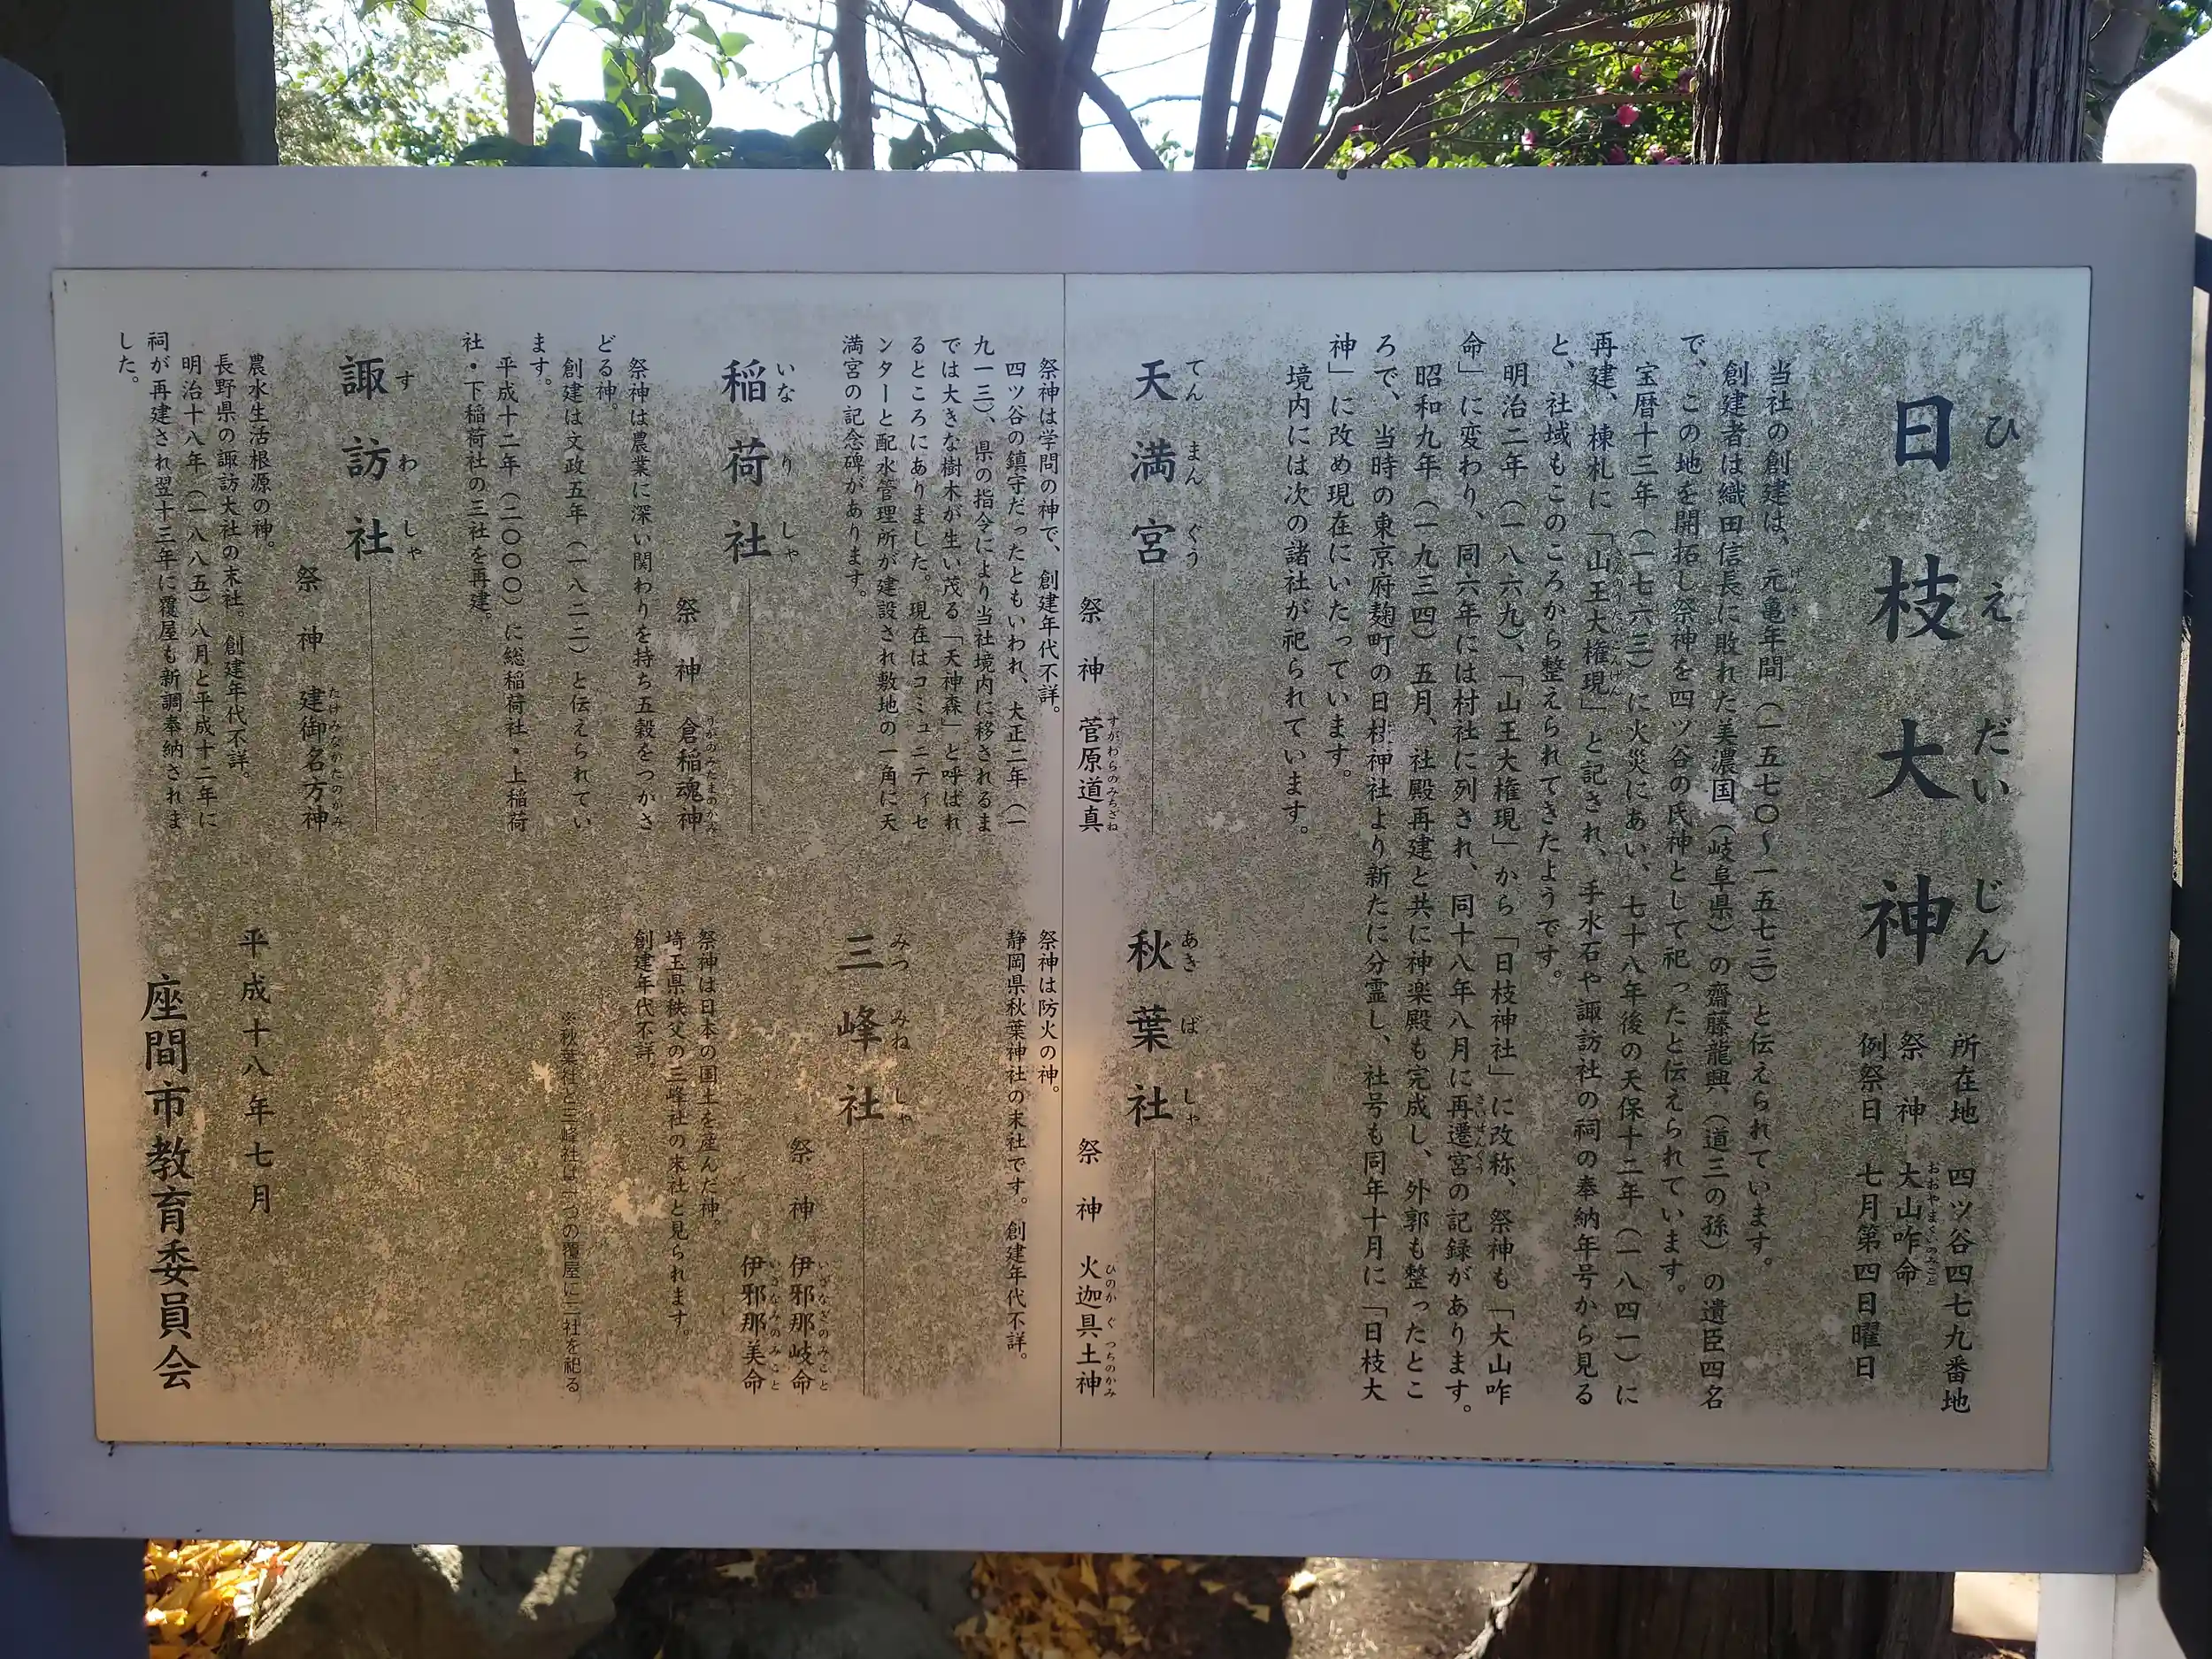 日枝大神
ひえだいじん
所在地　四ツ谷四七九番地
祭　神　大山咋命
おおやまくいのみこと
例祭日　七月第四日曜日
当社の創建は、元亀年間（一五七〇～一五七三）と伝えられています。
げんき
創建者は織田信長に敗れた美濃国（岐阜県）の齋藤龍興（道三の孫）の遺臣四名
で、この地を開拓し祭神を四ツ谷の氏神として祀ったと伝えられています。
宝暦十三年（一七六三）に火災にあい、七十八年後の天保十二年（一八四一）に
再建、棟札に「山王大権現」と記され、手水石や諏訪社の祠の奉納年号から見る
さんのうだいごんげん
と、社域もこのころから整えられてきたようです。
明治二年（一八六九）、「山王大権現」から「日枝神社」に改称、祭神も「大山咋
命」に変わり、同六年には村社に列され、同十八年八月に再遷宮の記録があります。
さいせんぐう
昭和九年（一九三四）五月、社殿再建と共に神楽殿も完成し、外郭も整ったとこ
ろで、当時の東京府麹町の日枝神社より新たに分霊し、社号も同年十月に「日枝大
神」に改め現在にいたっています。
境内には次の諸社が祀られています。
天満宮
てんまんぐう
祭　神　菅原道真
すがわらのみちざね
祭神は学問の神で、創建年代不詳。
四ツ谷の鎮守だったともいわれ、大正二年（一
九一三）、県の指令により当社境内に移されるま
では大きな樹木が生い茂る「天神森」と呼ばれ
るところにありました。現在はコミュニティセ
ンターと配水管理所が建設され敷地の一角に天
満宮の記念碑があります。
秋葉社
あきばしゃ
祭　神　火迦具土神
ひのかぐつちのかみ
祭神は防火の神。
静岡県秋葉神社の末社です。創建年代不詳。
稲荷社
いなりしゃ
祭　神　倉稲魂神
うがのみたまのかみ
祭神は農業に深い関わりを持ち五穀をつかさ
どる神。
創建は文政五年（一八二二）と伝えられてい
ます。
平成十二年（二〇〇〇）に総稲荷社・上稲荷
社・下稲荷社の三社を再建。
三峰社
みつみねしゃ
祭　神　伊邪那岐命
いざなぎのみこと
伊邪那美命
いざなみのみこと
祭神は日本の国土を産んだ神。
埼玉県秩父の三峰社の末社と見られます。
創建年代不詳。
※秋葉社と三峰社は一つの覆屋に二社を祀る
諏訪社
すわしゃ
祭　神　建御名方神
たけみなかたのかみ
農水生活根源の神。
長野県の諏訪大社の末社。創建年代不詳。
明治十八年（一八八五）八月と平成十二年に
祠が再建され翌十三年に覆屋も新調奉納されま
した。
平成十八年七月
座間市教育委員会